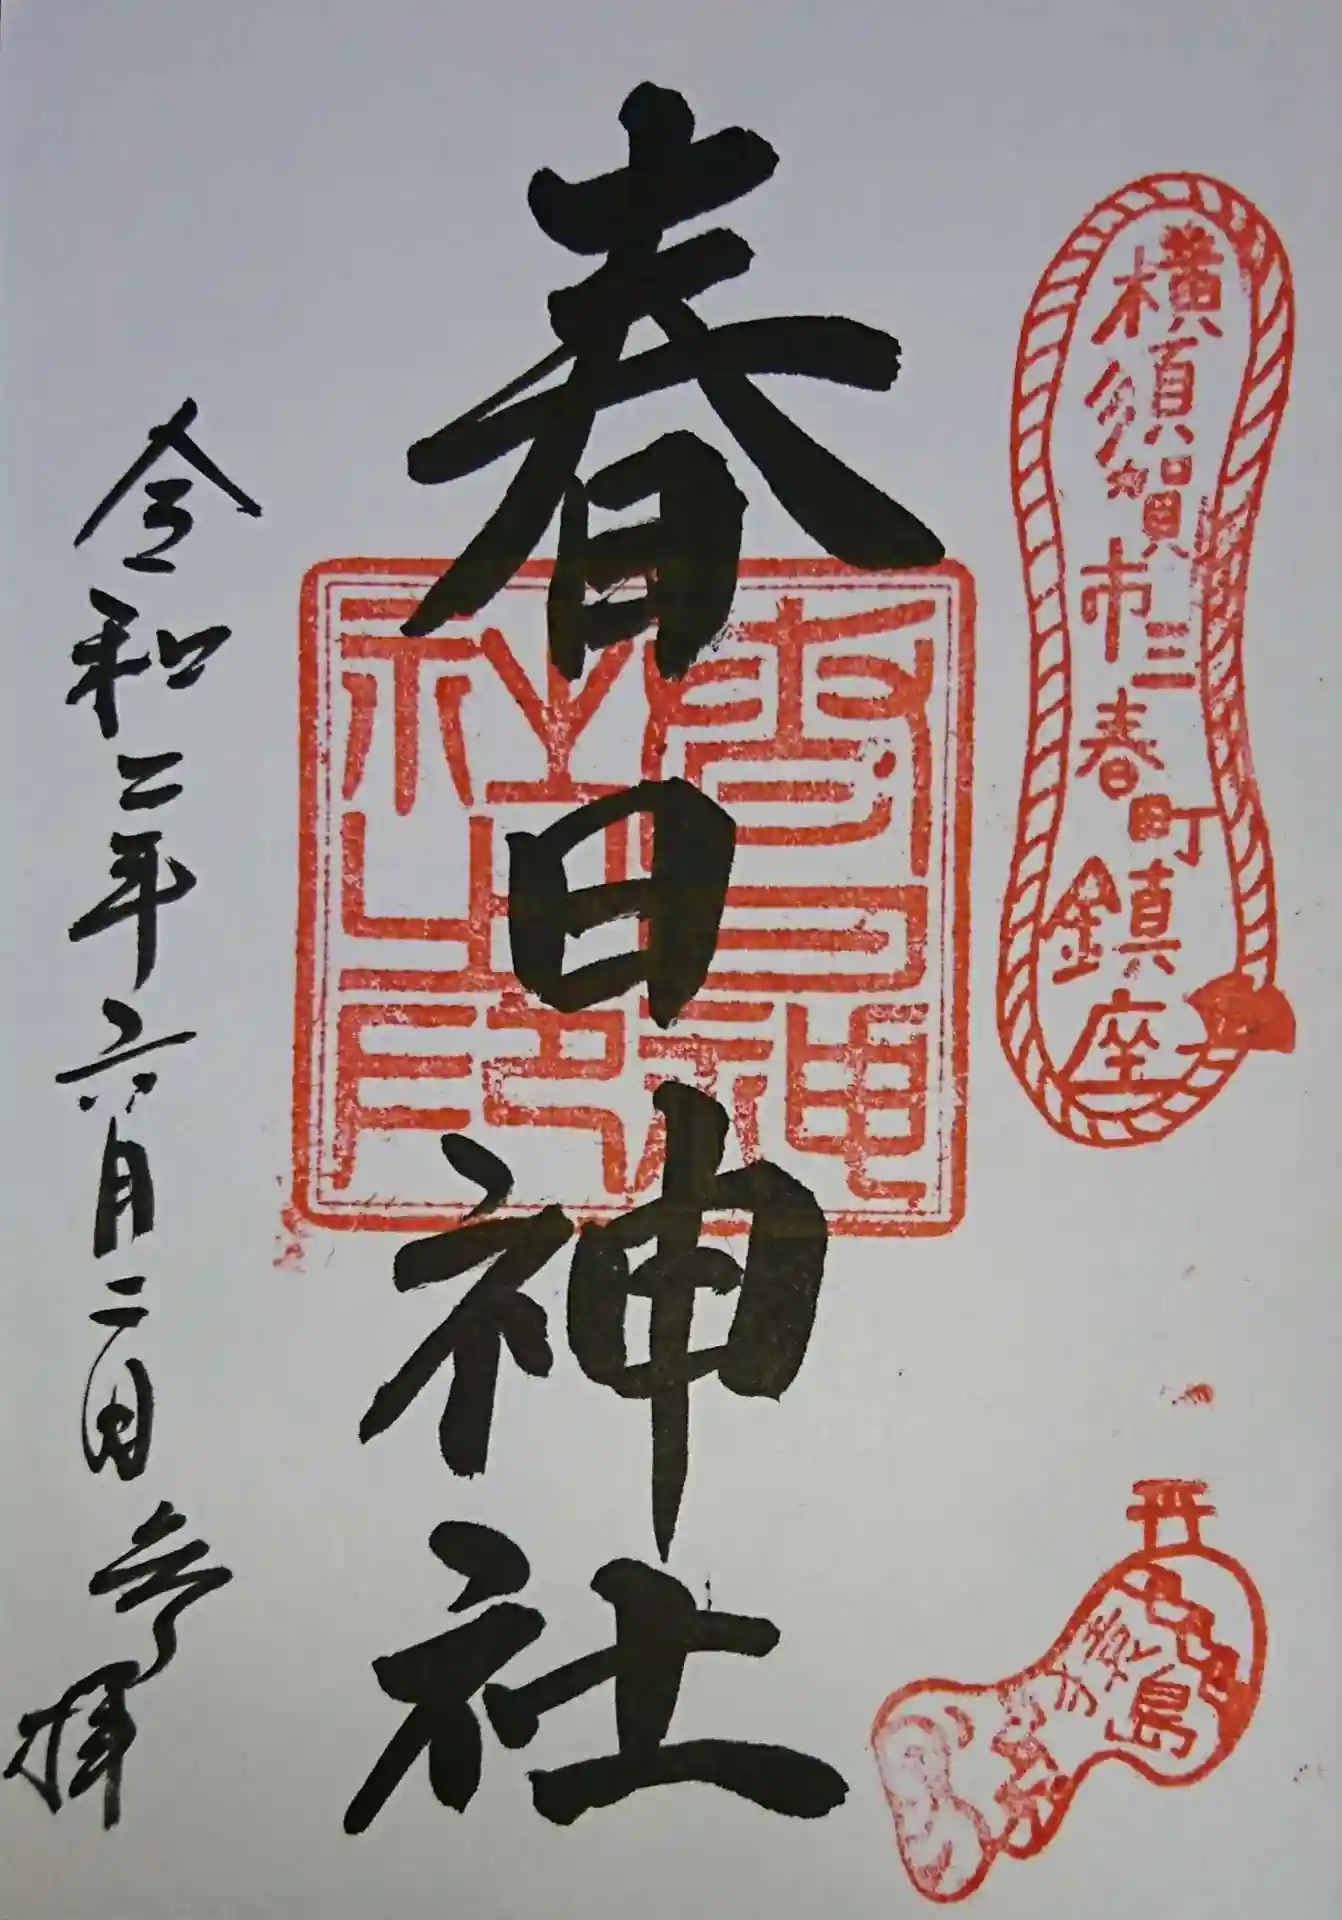 横須賀市三春町鎮座
猿島
春日神社
春日神社之印
令和二年六月二日参拝